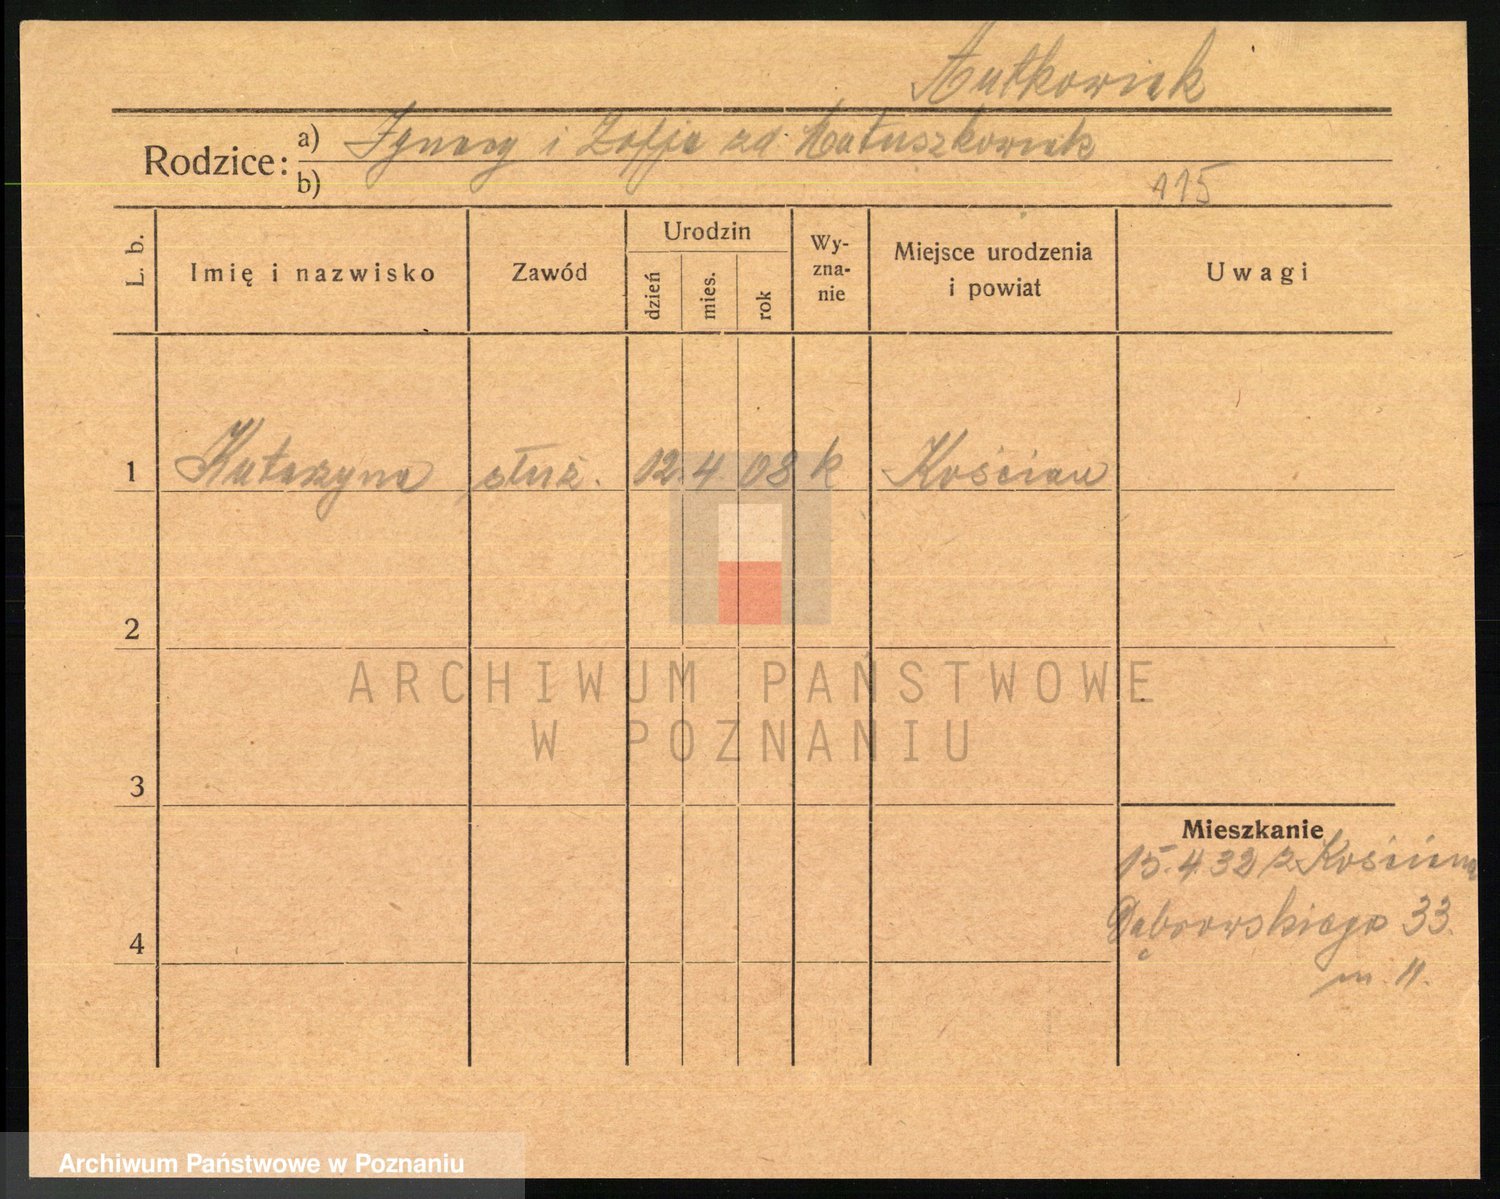 Rodzice:
a) Ignacy i Zofja zd. Matuszkowiak
b)
115
L. b.
Imię i nazwisko
Zawód
Urodzin
dzień
mies.
rok
Wy-
zna-
nie
Miejsce urodzenia
i powiat
Uwagi
1 Katarzyna służ. 12. 4. 08 k Kościan
2
3
4
Mieszkanie
15.4.32 z Kościana
Dąbrowskiego 33
m. 11.
ARCHIWUM PAŃSTWOWE
W POZNANIU
Archiwum Państwowe w Poznaniu